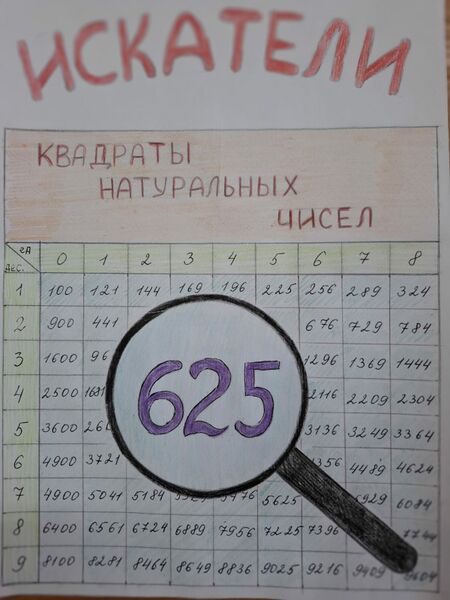 ИСКАТЕЛИ
КВАДРАТЫ
НАТУРАЛЬНЫХ
ЧИСЕЛ
ед
дес. 0 1 2 3 4 5 6 7 8
1 100 121 144 169 196 225 256 289 324
2 900 441 676 729 784
3 1600 96 1296 1369 1444
4 2500 2116 2209 2304
625
5 3600 3136 3249 3364
6 4900 3721 4489 4624
7 4900 5041 5184 5625 6084
8 6400 6561 6724 6889 7956 7225 7396 7744
9 8100 8281 8464 8649 8836 9025 9216 9409 9604